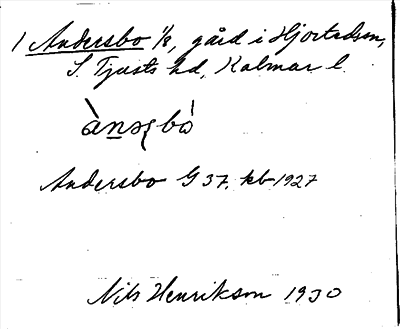 1 Andersbo 1/8, gård i Hjorteds sn,
S. Tjusts hd, Kalmar l.
ànǝʂbò
Andersbo G 37, kb 1927
Nils Henrikson 1930